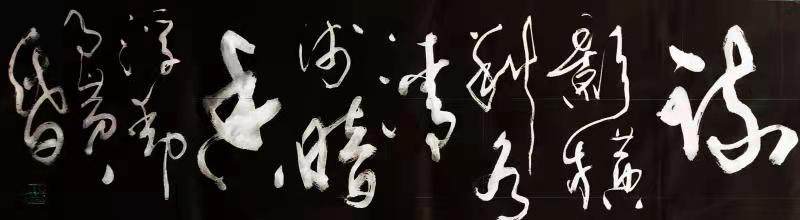 疏
影横
斜水
清
浅暗
香
浮動
月黄
昏